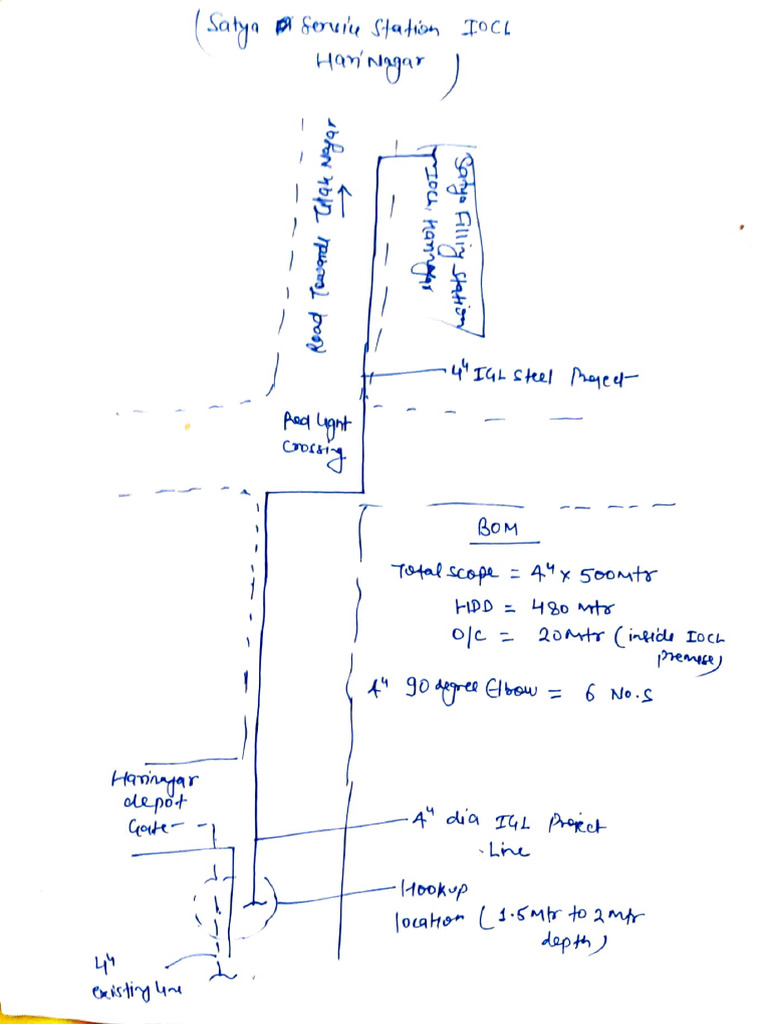 (Satya Service Station IOCL
HariNagar)
Road Towards Tilak Nagar
Satya Filling Station
IOCL Harinagar
4" IGL Steel Project
Red light
crossing
BOM
Total scope = 4" x 500mtr
HDD = 480 mtr
O/C = 20mtr (inside IOCL
premise)
4" 90 degree Elbow = 6 No.s
Harinagar
depot
Gate
4" dia IGL Project
Line
Hookup
location (1.5mtr to 2mtr
depth)
4"
existing line